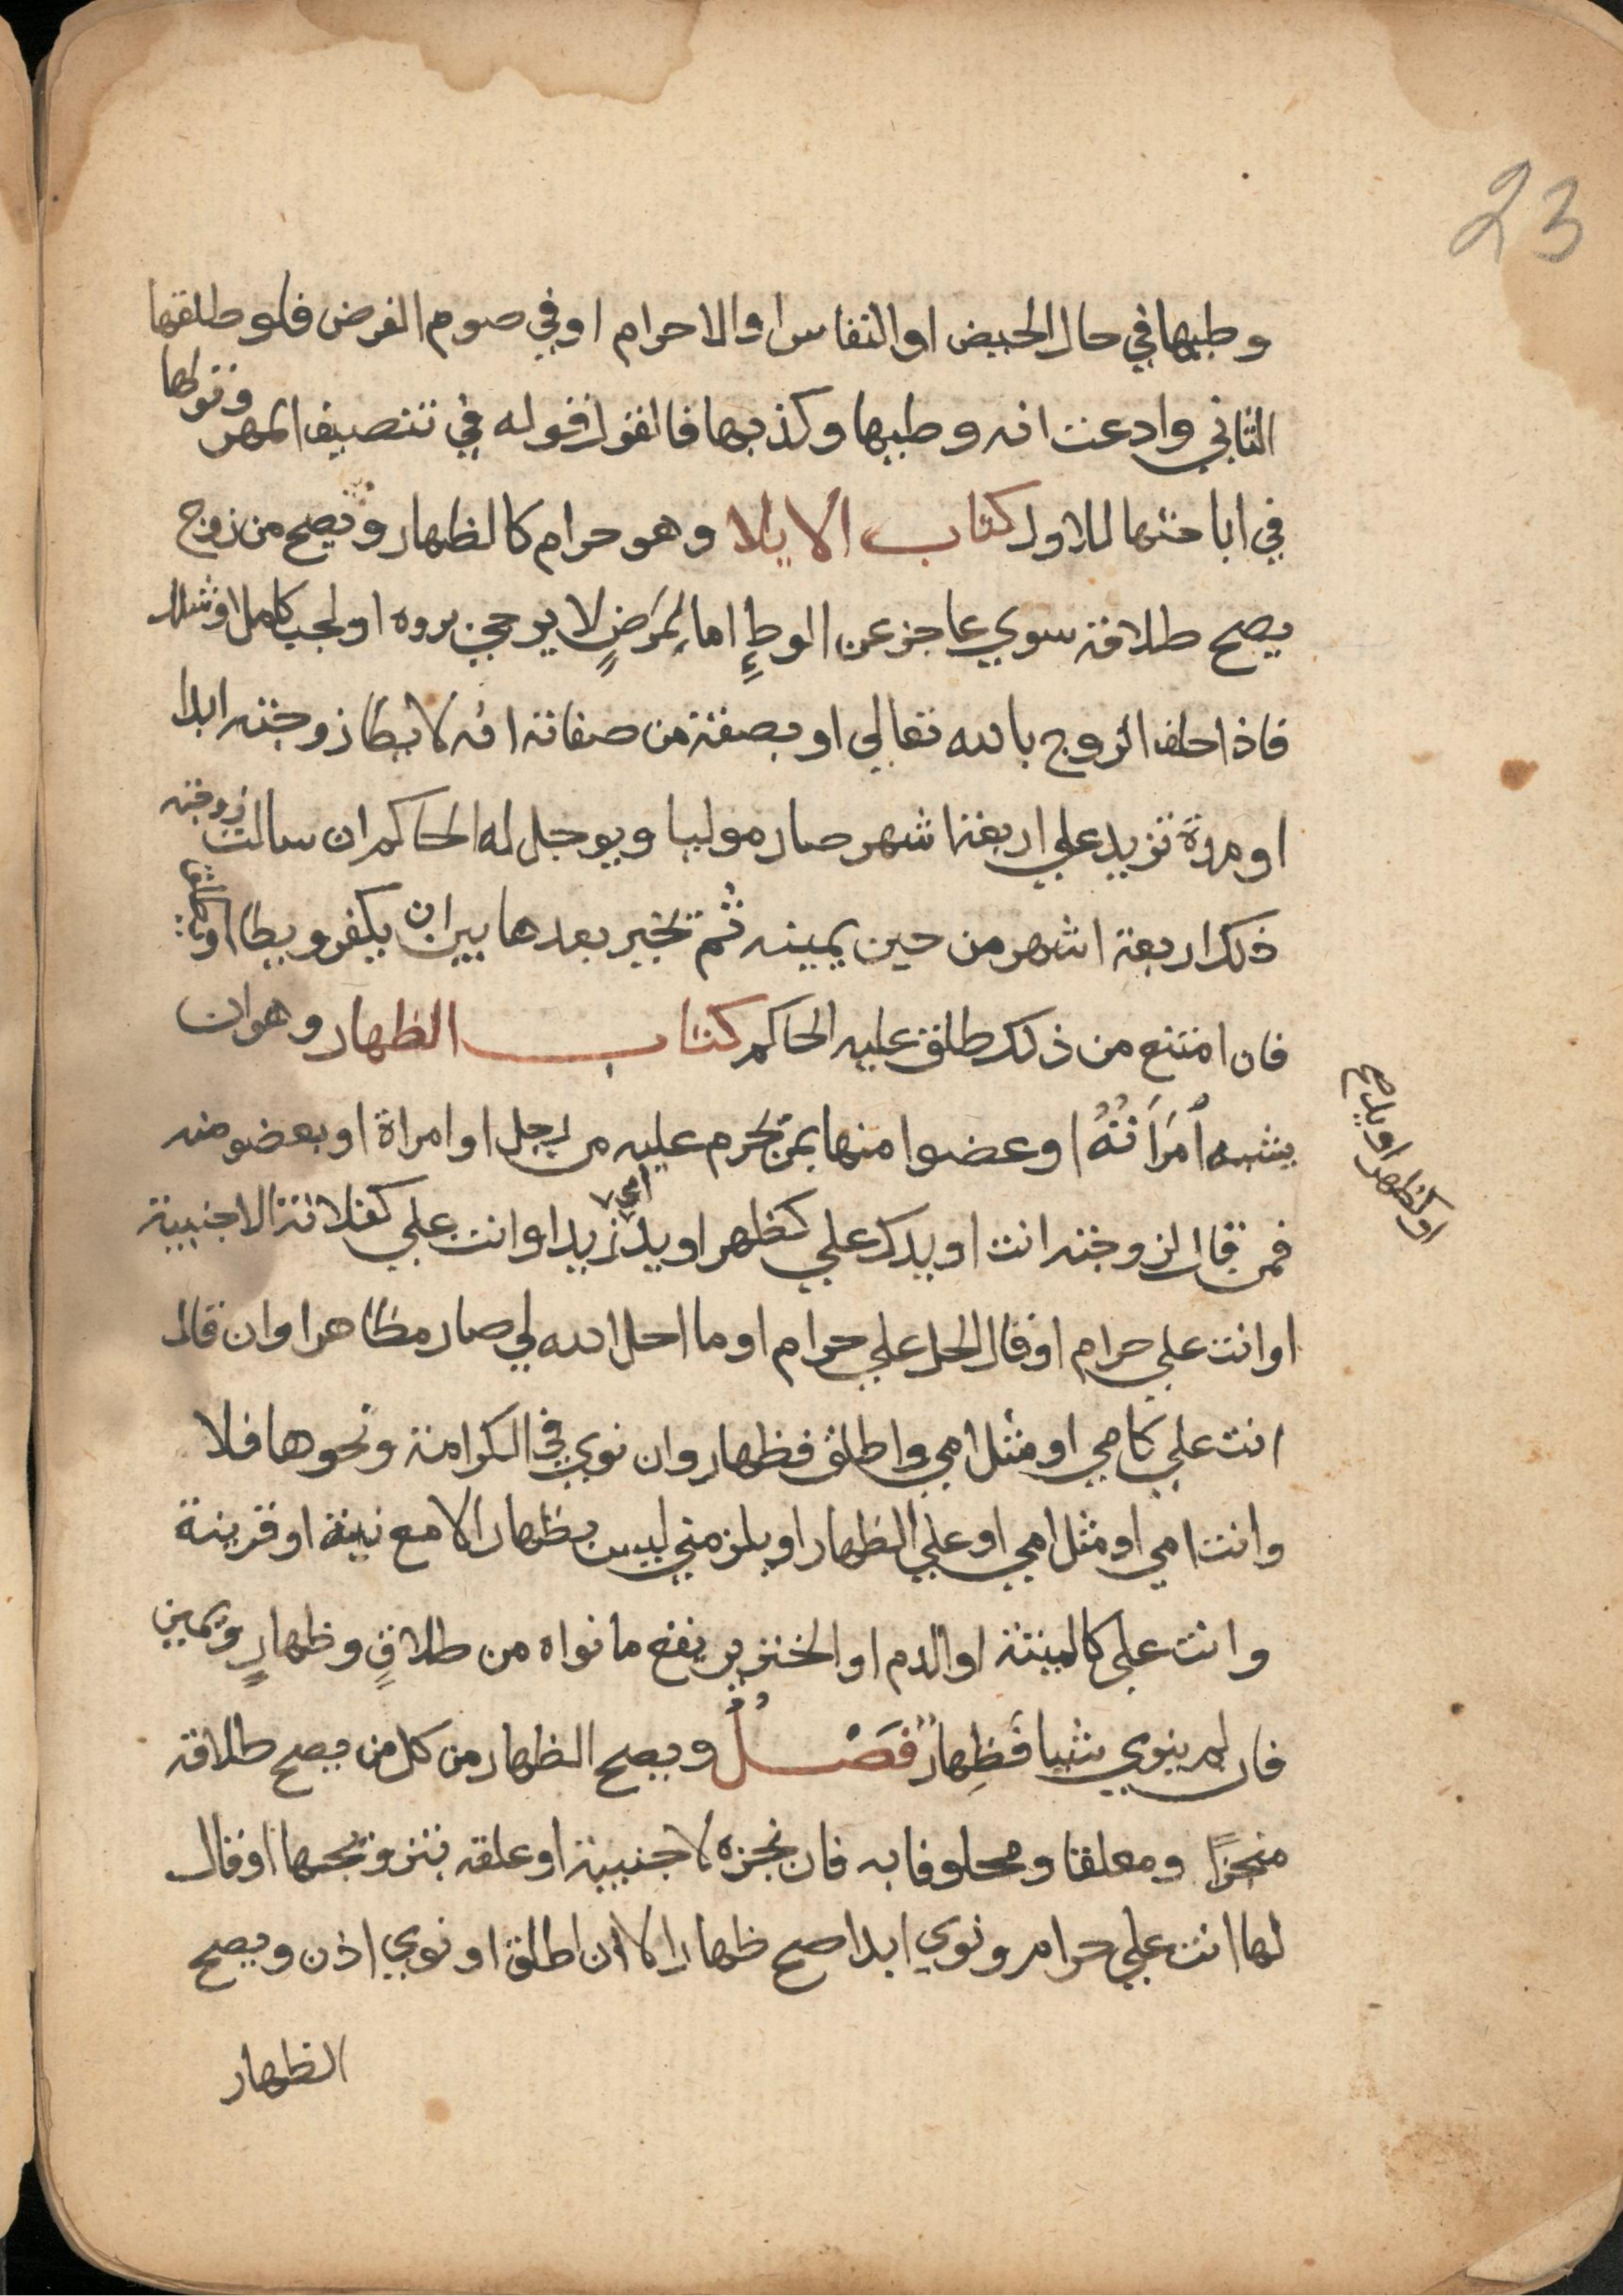 23
وطيها في حال الحيض او النفاس او الاحرام او في صوم الفرض فلو طلقها
الثاني وادعت انه وطيها وكذبها فالقول قوله في تنصيف المهر وقولها
في اباحتها للاول كتاب الايلا وهو حرام كالظهار ويصح من زوج
يصح طلاقه سوي عاجز عن الوطءِ اما لِمَرَضٍ لا يرجي بروه او لجب كامل او شلل
فاذا حلف الزوج بالله تعالي او بصفة من صفاته انه لا يطا زوجته ابدا
او مدة تزيد علي اربعة اشهر صار موليا ويوجل له الحاكم ان سالت زوجته
ذلك اربعة اشهر من حين يمينه ثُم يخير بعدها بين ان يكفر ويطا او
فان امتنع من ذلك طلق عليه الحاكم كتاب الظهار وهو ان
يشبه اَمرَاَتُهُ او عضوا منها بمن تحرم عليه من رجل او امراة او بعضو منه
فمن قال لزوجته انت او يدك علي كظهر او يد امي زيد او انت علي كفلانة الاجنبية
او كظهر او يد صح
او انت علي حرام او قال الحل علي حرام او ما احل الله لي صار مظاهرا وان قال
انت علي كامي او مثل امي واطلق فظهار وان نوي في الكرامة ونحوها فلا
وانت امي او مثل امي او علي الظهار او يلزمني ليس بظهار الا مع نية او قرينة
وانت علي كالميتة او الدم او الخنزير يقع ما نواه من طلاقٍ وظهارٍ ويمين
فان لم ينوي شيا فَظِهارٌ فَصْلٌ ويصح الظهار من كل من يصح طلاقه
منجزًا ومعلقا ومحلوفا به فان نجزه لاجنبية او علقه بتزويجها او قال
لها انت علي حرام ونوي ابدا صح ظهارا لا ان اطلق او نوي اذن ويصح
الظهار